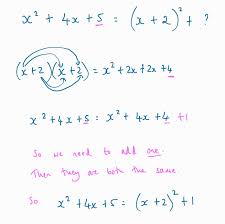 x² + 4x + 5 = (x + 2)² + ?
(x + 2)(x + 2) = x² + 2x + 2x + 4
x² + 4x + 5 = x² + 4x + 4 + 1
So we need to add one.
Then they are both the same
So x² + 4x + 5 = (x + 2)² + 1